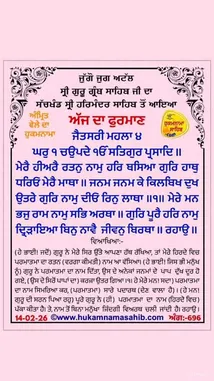 ਜੁੱਗੋ ਜੁਗ ਅਟੱਲ
ਸ੍ਰੀ ਗੁਰੂ ਗ੍ਰੰਥ ਸਾਹਿਬ ਜੀ ਦਾ
ਸੱਚਖੰਡ ਸ੍ਰੀ ਹਰਿਮੰਦਰ ਸਾਹਿਬ ਤੋਂ ਆਇਆ
ਅੰਮ੍ਰਿਤ
ਵੇਲੇ ਦਾ
ਹੁਕਮਨਾਮਾ
ਅੱਜ ਦਾ ਫੁਰਮਾਣ
ਹੁਕਮਨਾਮਾ
ਸਾਹਿਬ
ਜੈਤਸਰੀ ਮਹਲਾ ੪
ਘਰੁ ੧ ਚਉਪਦੇ ੴ ਸਤਿਗੁਰ ਪ੍ਰਸਾਦਿ ॥
ਮੇਰੈ ਹੀਅਰੈ ਰਤਨੁ ਨਾਮੁ ਹਰਿ ਬਸਿਆ ਗੁਰਿ ਹਾਥੁ
ਧਰਿਓ ਮੇਰੈ ਮਾਥਾ ॥ ਜਨਮ ਜਨਮ ਕੇ ਕਿਲਬਿਖ ਦੁਖ
ਉਤਰੇ ਗੁਰਿ ਨਾਮੁ ਦੀਓ ਰਿਨੁ ਲਾਥਾ ॥੧॥ ਮੇਰੇ ਮਨ
ਭਜੁ ਰਾਮ ਨਾਮੁ ਸਭਿ ਅਰਥਾ ॥ ਗੁਰਿ ਪੂਰੈ ਹਰਿ ਨਾਮੁ
ਦ੍ਰਿੜਾਇਆ ਬਿਨੁ ਨਾਵੈ ਜੀਵਨੁ ਬਿਰਥਾ ॥ ਰਹਾਉ ॥
ਵਿਆਖਿਆ:-
(ਹੇ ਭਾਈ! ਜਦੋਂ) ਗੁਰੂ ਨੇ ਮੇਰੇ ਸਿਰ ਉੱਤੇ ਆਪਣਾ ਹੱਥ ਰੱਖਿਆ, ਤਾਂ ਮੇਰੇ ਹਿਰਦੇ ਵਿਚ
ਪਰਮਾਤਮਾ ਦਾ ਰਤਨ (ਵਰਗਾ ਕੀਮਤੀ) ਨਾਮ ਆ ਵੱਸਿਆ। (ਹੇ ਭਾਈ! ਜਿਸ ਭੀ ਮਨੁੱਖ
ਨੂੰ) ਗੁਰੂ ਨੇ ਪਰਮਾਤਮਾ ਦਾ ਨਾਮ ਦਿੱਤਾ, ਉਸ ਦੇ ਅਨੇਕਾਂ ਜਨਮਾਂ ਦੇ ਪਾਪ ਦੁੱਖ ਦੂਰ ਹੋ
ਗਏ, (ਉਸ ਦੇ ਸਿਰੋਂ ਪਾਪਾਂ ਦਾ) ਕਰਜ਼ਾ ਉਤਰ ਗਿਆ।੧। ਹੇ ਮੇਰੇ ਮਨ! (ਸਦਾ) ਪਰਮਾਤਮਾ
ਦਾ ਨਾਮ ਸਿਮਰਿਆ ਕਰ, (ਪਰਮਾਤਮਾ) ਸਾਰੇ ਪਦਾਰਥ (ਦੇਣ ਵਾਲਾ ਹੈ)। (ਹੇ ਮਨ!
ਗੁਰੂ ਦੀ ਸਰਨ ਪਿਆ ਰਹੁ) ਪੂਰੇ ਗੁਰੂ ਨੇ (ਹੀ) ਪਰਮਾਤਮਾ ਦਾ ਨਾਮ (ਹਿਰਦੇ ਵਿਚ)
ਪੱਕਾ ਕੀਤਾ ਹੈ। ਤੇ, ਨਾਮ ਤੋਂ ਬਿਨਾ ਮਨੁੱਖਾ ਜ਼ਿੰਦਗੀ ਵਿਅਰਥ ਚਲੀ ਜਾਂਦੀ ਹੈ। ਰਹਾਉ।
14-02-26 www.hukamnamasahib.com ਅੰਗ:-696